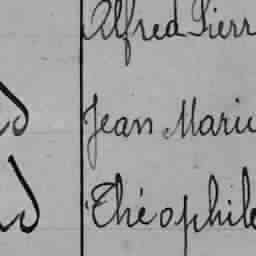 Alfred Pierr
Jean Marie
Théophile